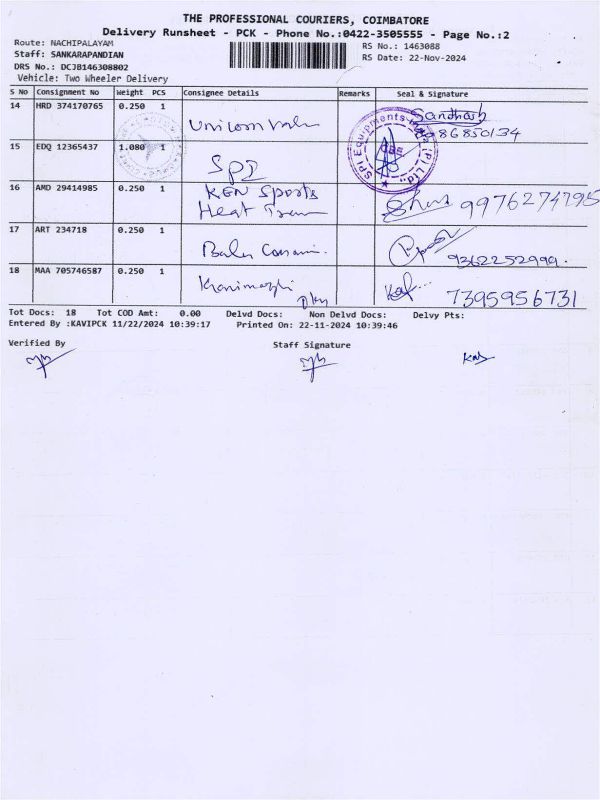 THE PROFESSIONAL COURIERS, COIMBATORE
Delivery Runsheet - PCK - Phone No.:0422-3505555 - Page No.:2
Route: NACHIPALAYAM
Staff: SANKARAPANDIAN
DRS No.: DCJB146308802
Vehicle: Two Wheeler Delivery
RS No.: 1463088
RS Date: 22-Nov-2024
S No Consignment No Weight PCS Consignee Details Remarks Seal & Signature
14 HRD 374170765 0.250 1 Unicorn
86850134
15 EDQ 12365437 1.080 1 SPI
SPI Equipments India (P) Ltd.
16 AMD 29414985 0.250 1 KEN Sports
Heat
9976274795
17 ART 234718 0.250 1
9362252999.
18 MAA 705746587 0.250 1 Kanimozhi
7395956731
Tot Docs: 18 Tot COD Amt: 0.00 Delvd Docs: Non Delvd Docs: Delvy Pts:
Entered By :KAVIPCK 11/22/2024 10:39:17 Printed On: 22-11-2024 10:39:46
Verified By Staff Signature